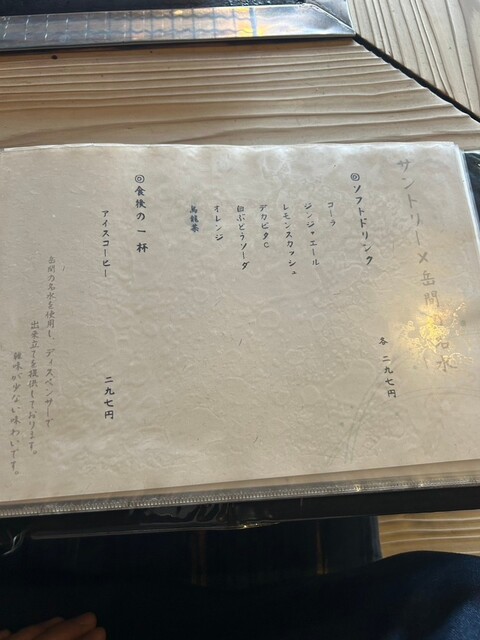 サントリー×岳間の名水
◎ソフトドリンク 各 二九七円
コーラ
ジンジャエール
レモンスカッシュ
デカビタC
白ぶどうソーダ
オレンジ
烏龍茶
◎食後の一杯
アイスコーヒー 二九七円
岳間の名水を使用し、ディスペンサーで
出来立てを提供しております。
雑味が少ない味わいです。